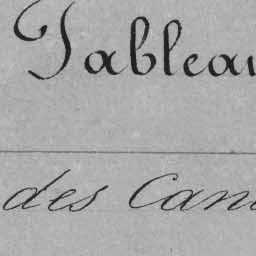 Tableau
des Can